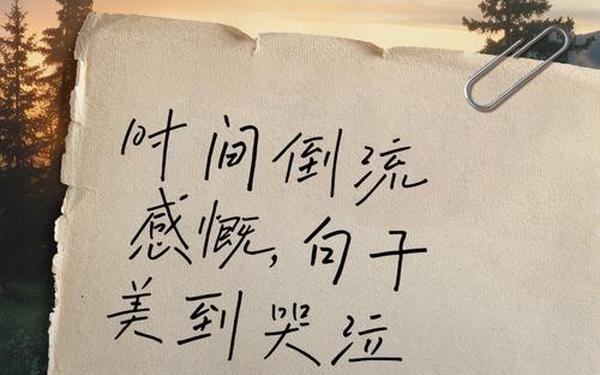 时间倒流
感慨,句子
美到哭泣